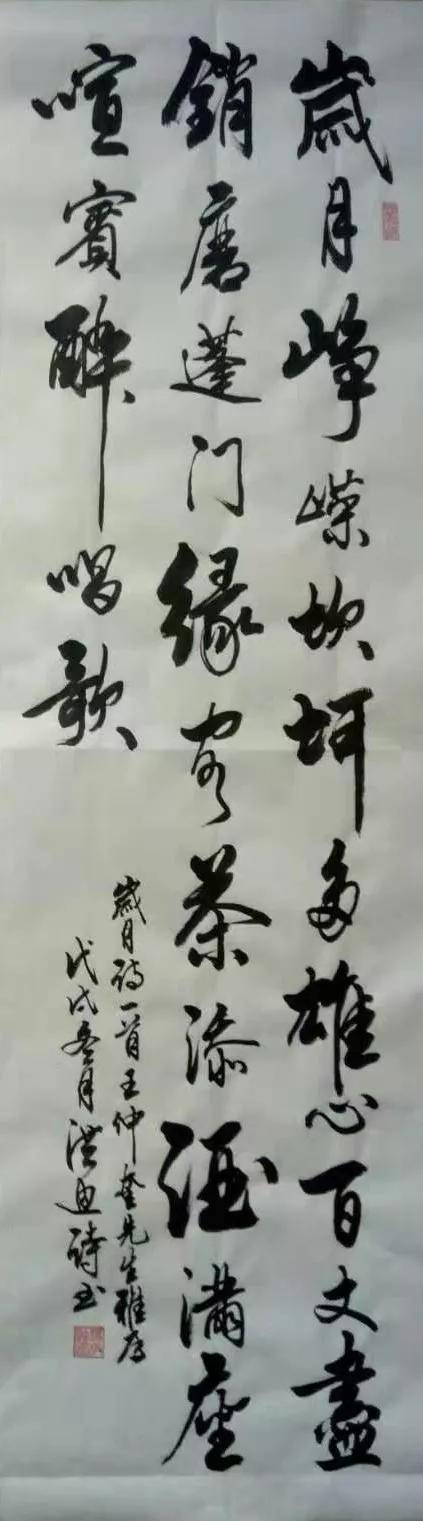 歲月崢嶸坎坷多雄心百丈盡
銷磨蓬门緣客茶添酒满座
喧賓醉唱歌
歲月诗一首王仲奎先生雅屬
戊戌冬月洪迪詩书